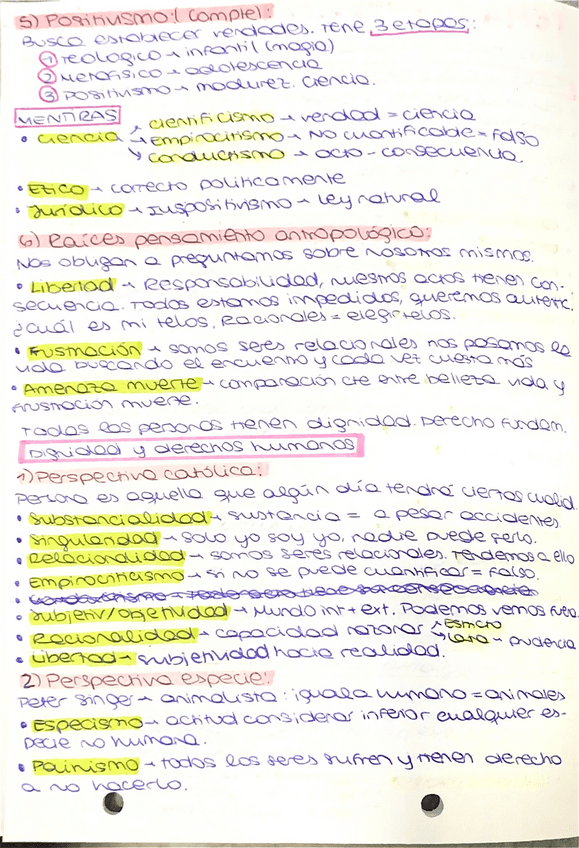 5) Positivismo: (Compte):
Busca establecer verdades. Tiene 3 etapas:
① Teológico → infantil (magia)
② Metafísico → adolescencia
③ Positivismo → madurez. Ciencia.
MENTIRAS
→ Cientificismo → verdad = ciencia
• Ciencia → Empirocritismo → No cuantificable = Falso
→ Conductismo → acto - consecuencia.
• Etico → correcto políticamente
• Jurídico → Iuspositivismo → Ley natural
6) Raíces pensamiento antropológico:
Nos obligan a preguntarnos sobre nosotros mismos.
• Libertad → Responsabilidad, nuestros actos tienen con-
secuencia. Todos estamos impedidos, queremos autentc.
¿Cuál es mi telos, Racionales = elegir telos.
• Frustración → somos seres relacionales nos pasamos la
vida buscando el encuentro y cada vez cuesta más
• Amenaza muerte → comparación cte entre belleza vida y
frustración muerte.
Todas las personas tienen dignidad. Derecho fundam.
Dignidad y derechos humanos
1) Perspectiva católica:
Persona es aquella que algún día tendrá ciertas cualid.
• Substancialidad → sustancia = a pesar accidentes
• Singularidad → Solo yo soy yo, nadie puede serlo.
• Relacionalidad → somos seres relacionales. Tendemos a ello
• Empirocriticismo → si no se puede cuantificar = Falso.
• Subjetiv/objetividad → Mundo int + ext. Podemos vernos fuera
• Racionalidad → capacidad razonar → Estricto
→ Lata → prudencia
• Libertad → subjetividad hacia realidad.
2) Perspectiva especie:
Peter Singer → animalista: iguala humano = animales
• Especismo → actitud considerar inferior cualquier es-
pecie no humana.
• Painismo → todos los seres sufren y tienen derecho
a no hacerlo.